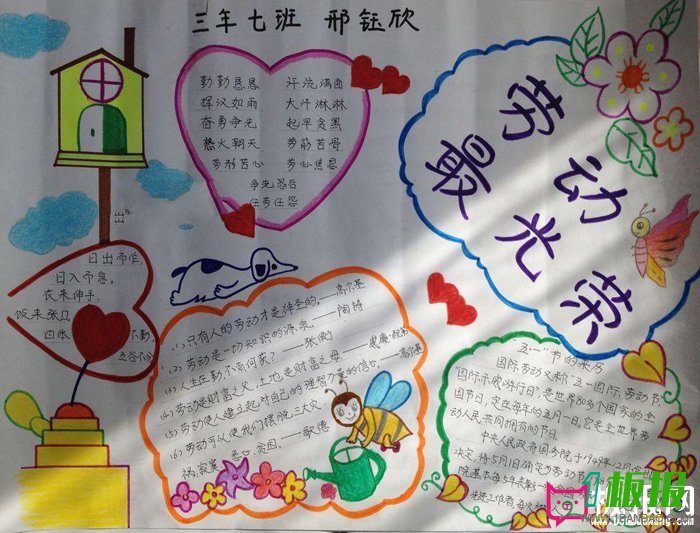 三年七班 邢钰欣
勤勤恳恳 汗流满面
挥汉如雨 大汗淋淋
奋勇争光 起早贪黑
热火朝天 劳筋苦骨
劳形苦心 劳心焦思
争先恐后
任劳任怨
劳动
最光荣
日出而作,
日入而息。
衣来伸手,
饭来张口
四体 不勤,
五谷不分
(1)只有人的劳动才是神圣的。——高尔基
(2)劳动是一切知识的源泉。——陶铸
(3)人生在勤不索何获?——张衡
(4)劳动是财富之父,土地是财富之母。——威廉·配第
(5)劳动使人建立起对自己的理智力量的信心。——高尔基
(6)劳动可以使我们摆脱三大灾
祸,寂寞、恶心、贫困。——歌德
五一节的来历
国际劳动又称"五一国际劳动节"
"国际示威游行日"是世界80多个国家的全
国节日,定在每年的五月一日,它是全世界劳
动人民共同拥有的节日
中央人民政府国务院于1949年12月
决定,将5月1日确定为劳动节
院基本每5年表彰一
先进工作者,每次
板报